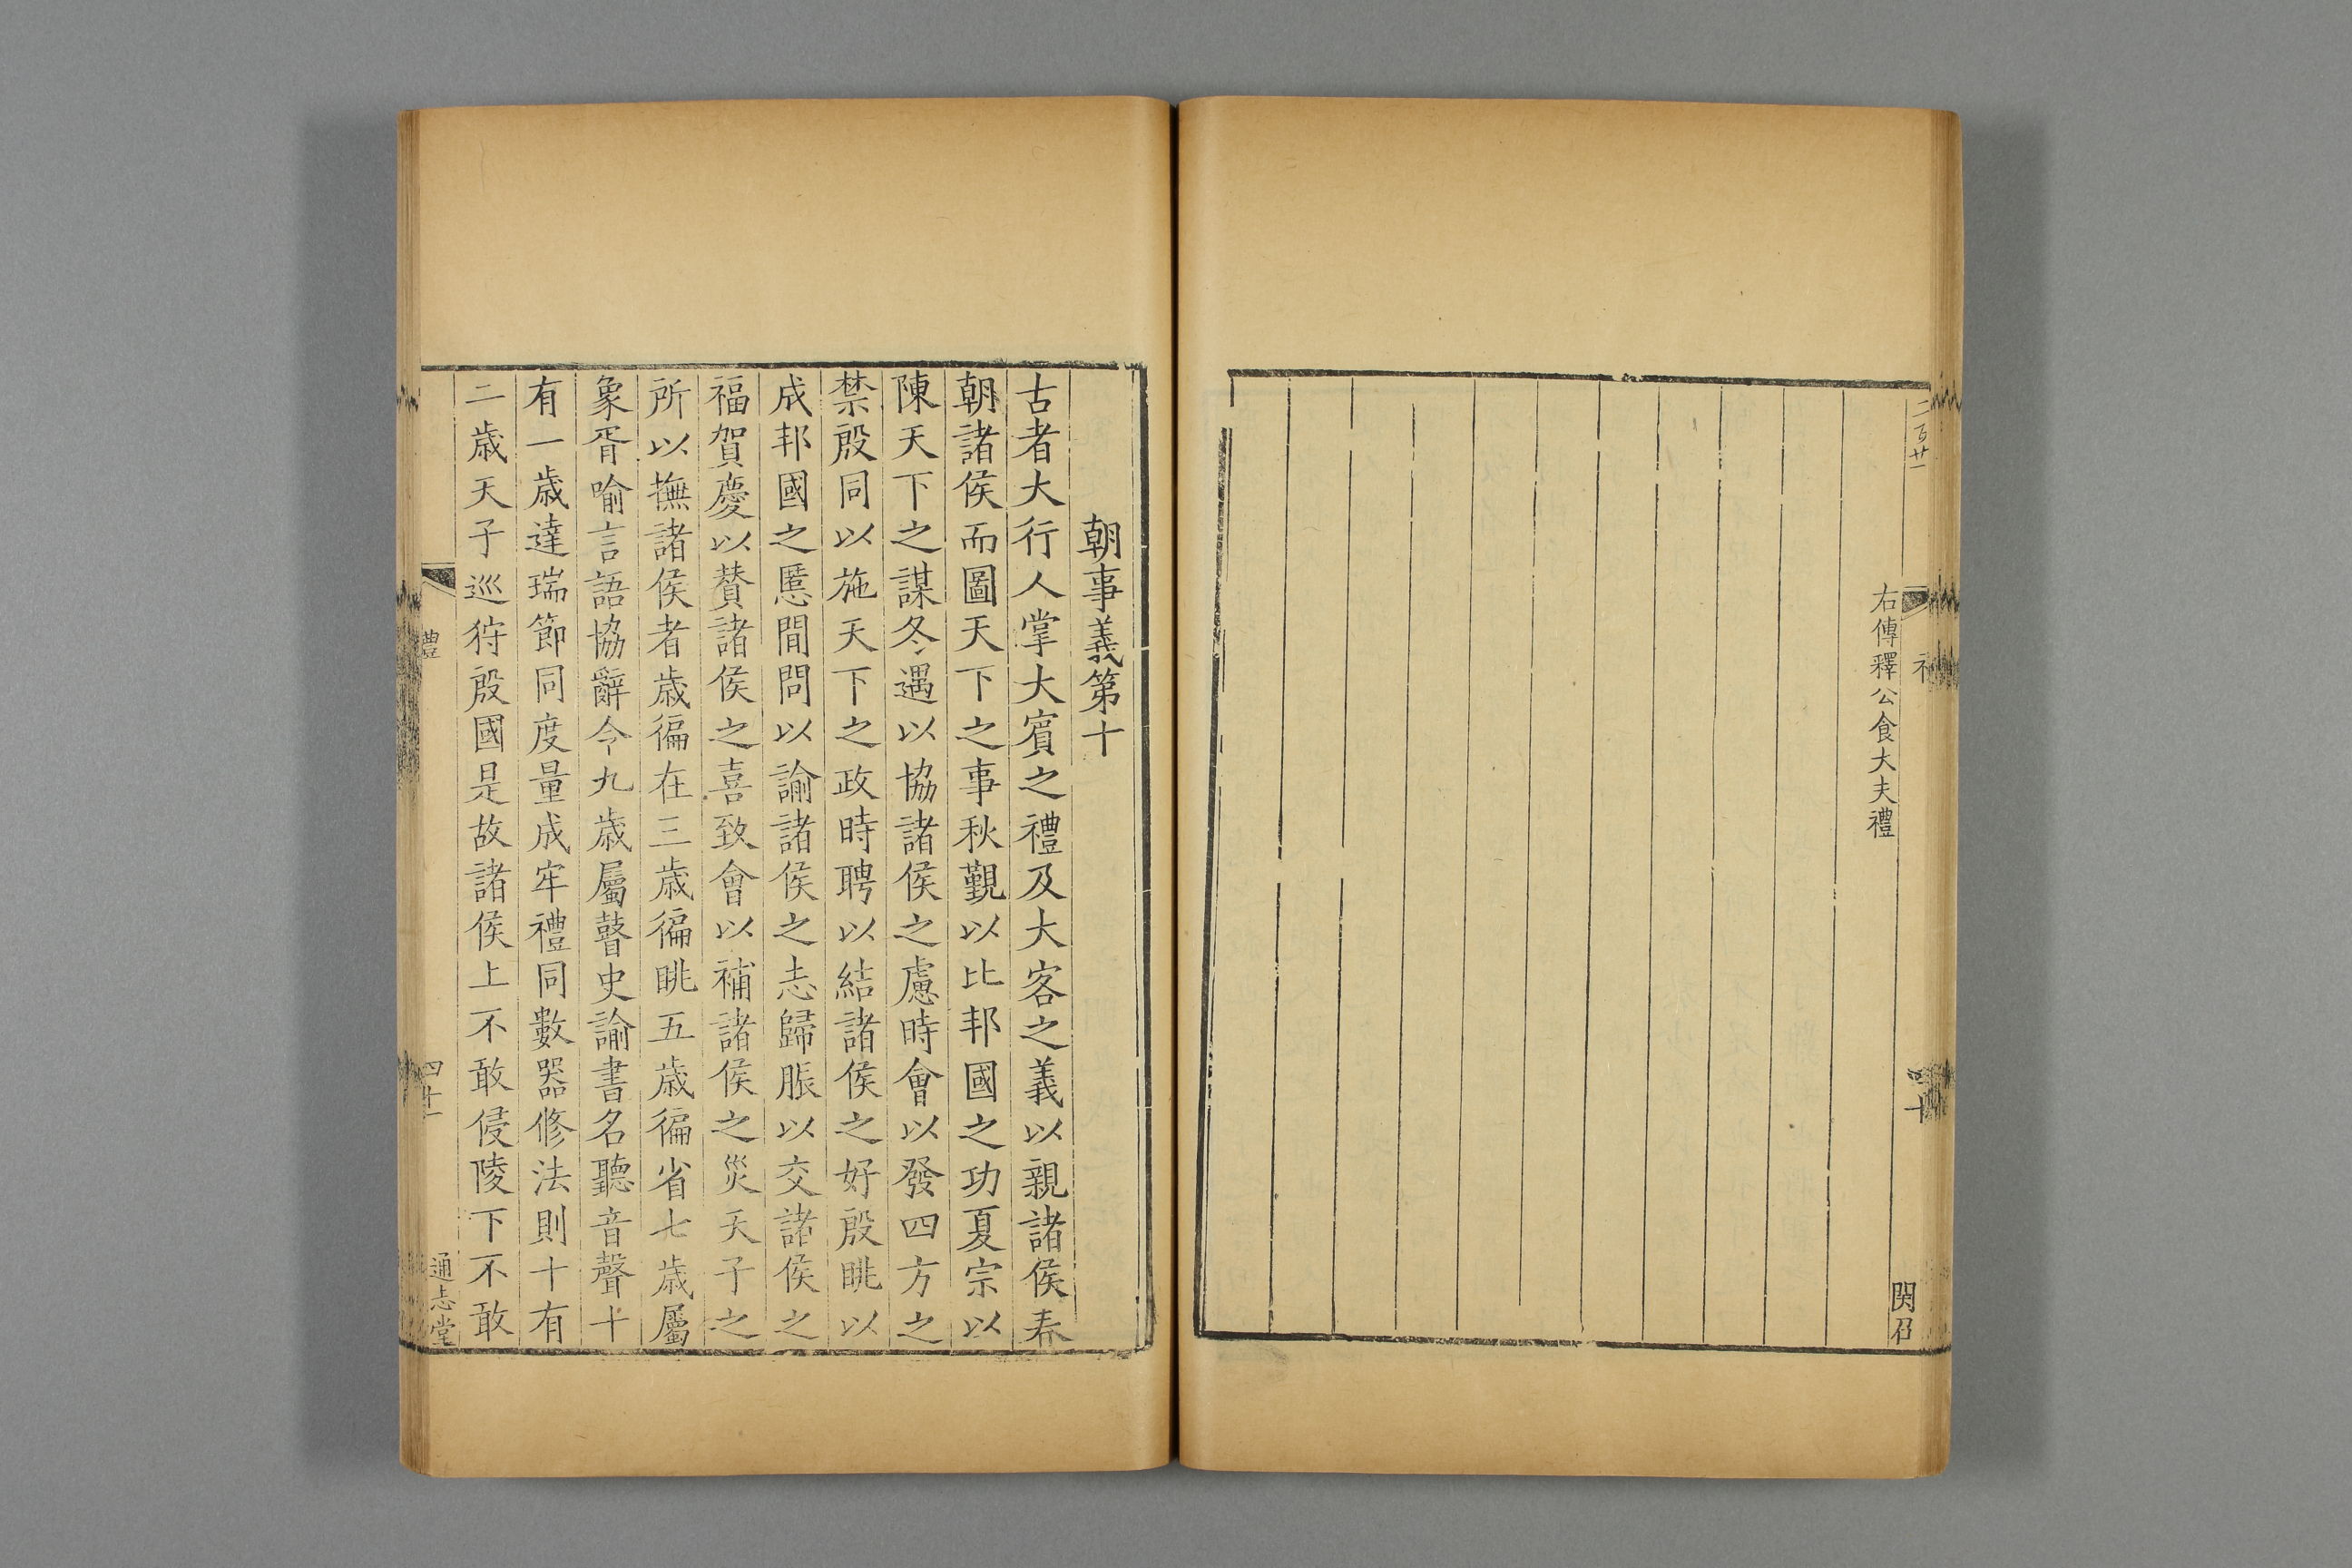 二百廿一
四十
関召
右傳釋公食大夫禮
朝事義第十
古者大行人掌大賓之禮及大客之義以親諸侯春
朝諸侯而圖天下之事秋覲以比邦國之功夏宗以
陳天下之謀冬遇以協諸侯之慮時會以發四方之
禁殷同以施天下之政時聘以結諸侯之好殷眺以
成邦國之慝間問以諭諸侯之志歸脤以交諸侯之
福賀慶以賛諸侯之喜致會以補諸侯之災天子之
所以撫諸侯者歳徧在三歳徧眺五歳徧省七歳屬
象胥喻言語協辭令九歳屬瞽史諭書名聽音聲十
有一歳達瑞節同度量成牢禮同數器修法則十有
二歳天子巡狩殷國是故諸侯上不敢侵陵下不敢
禮
四十一
通志堂